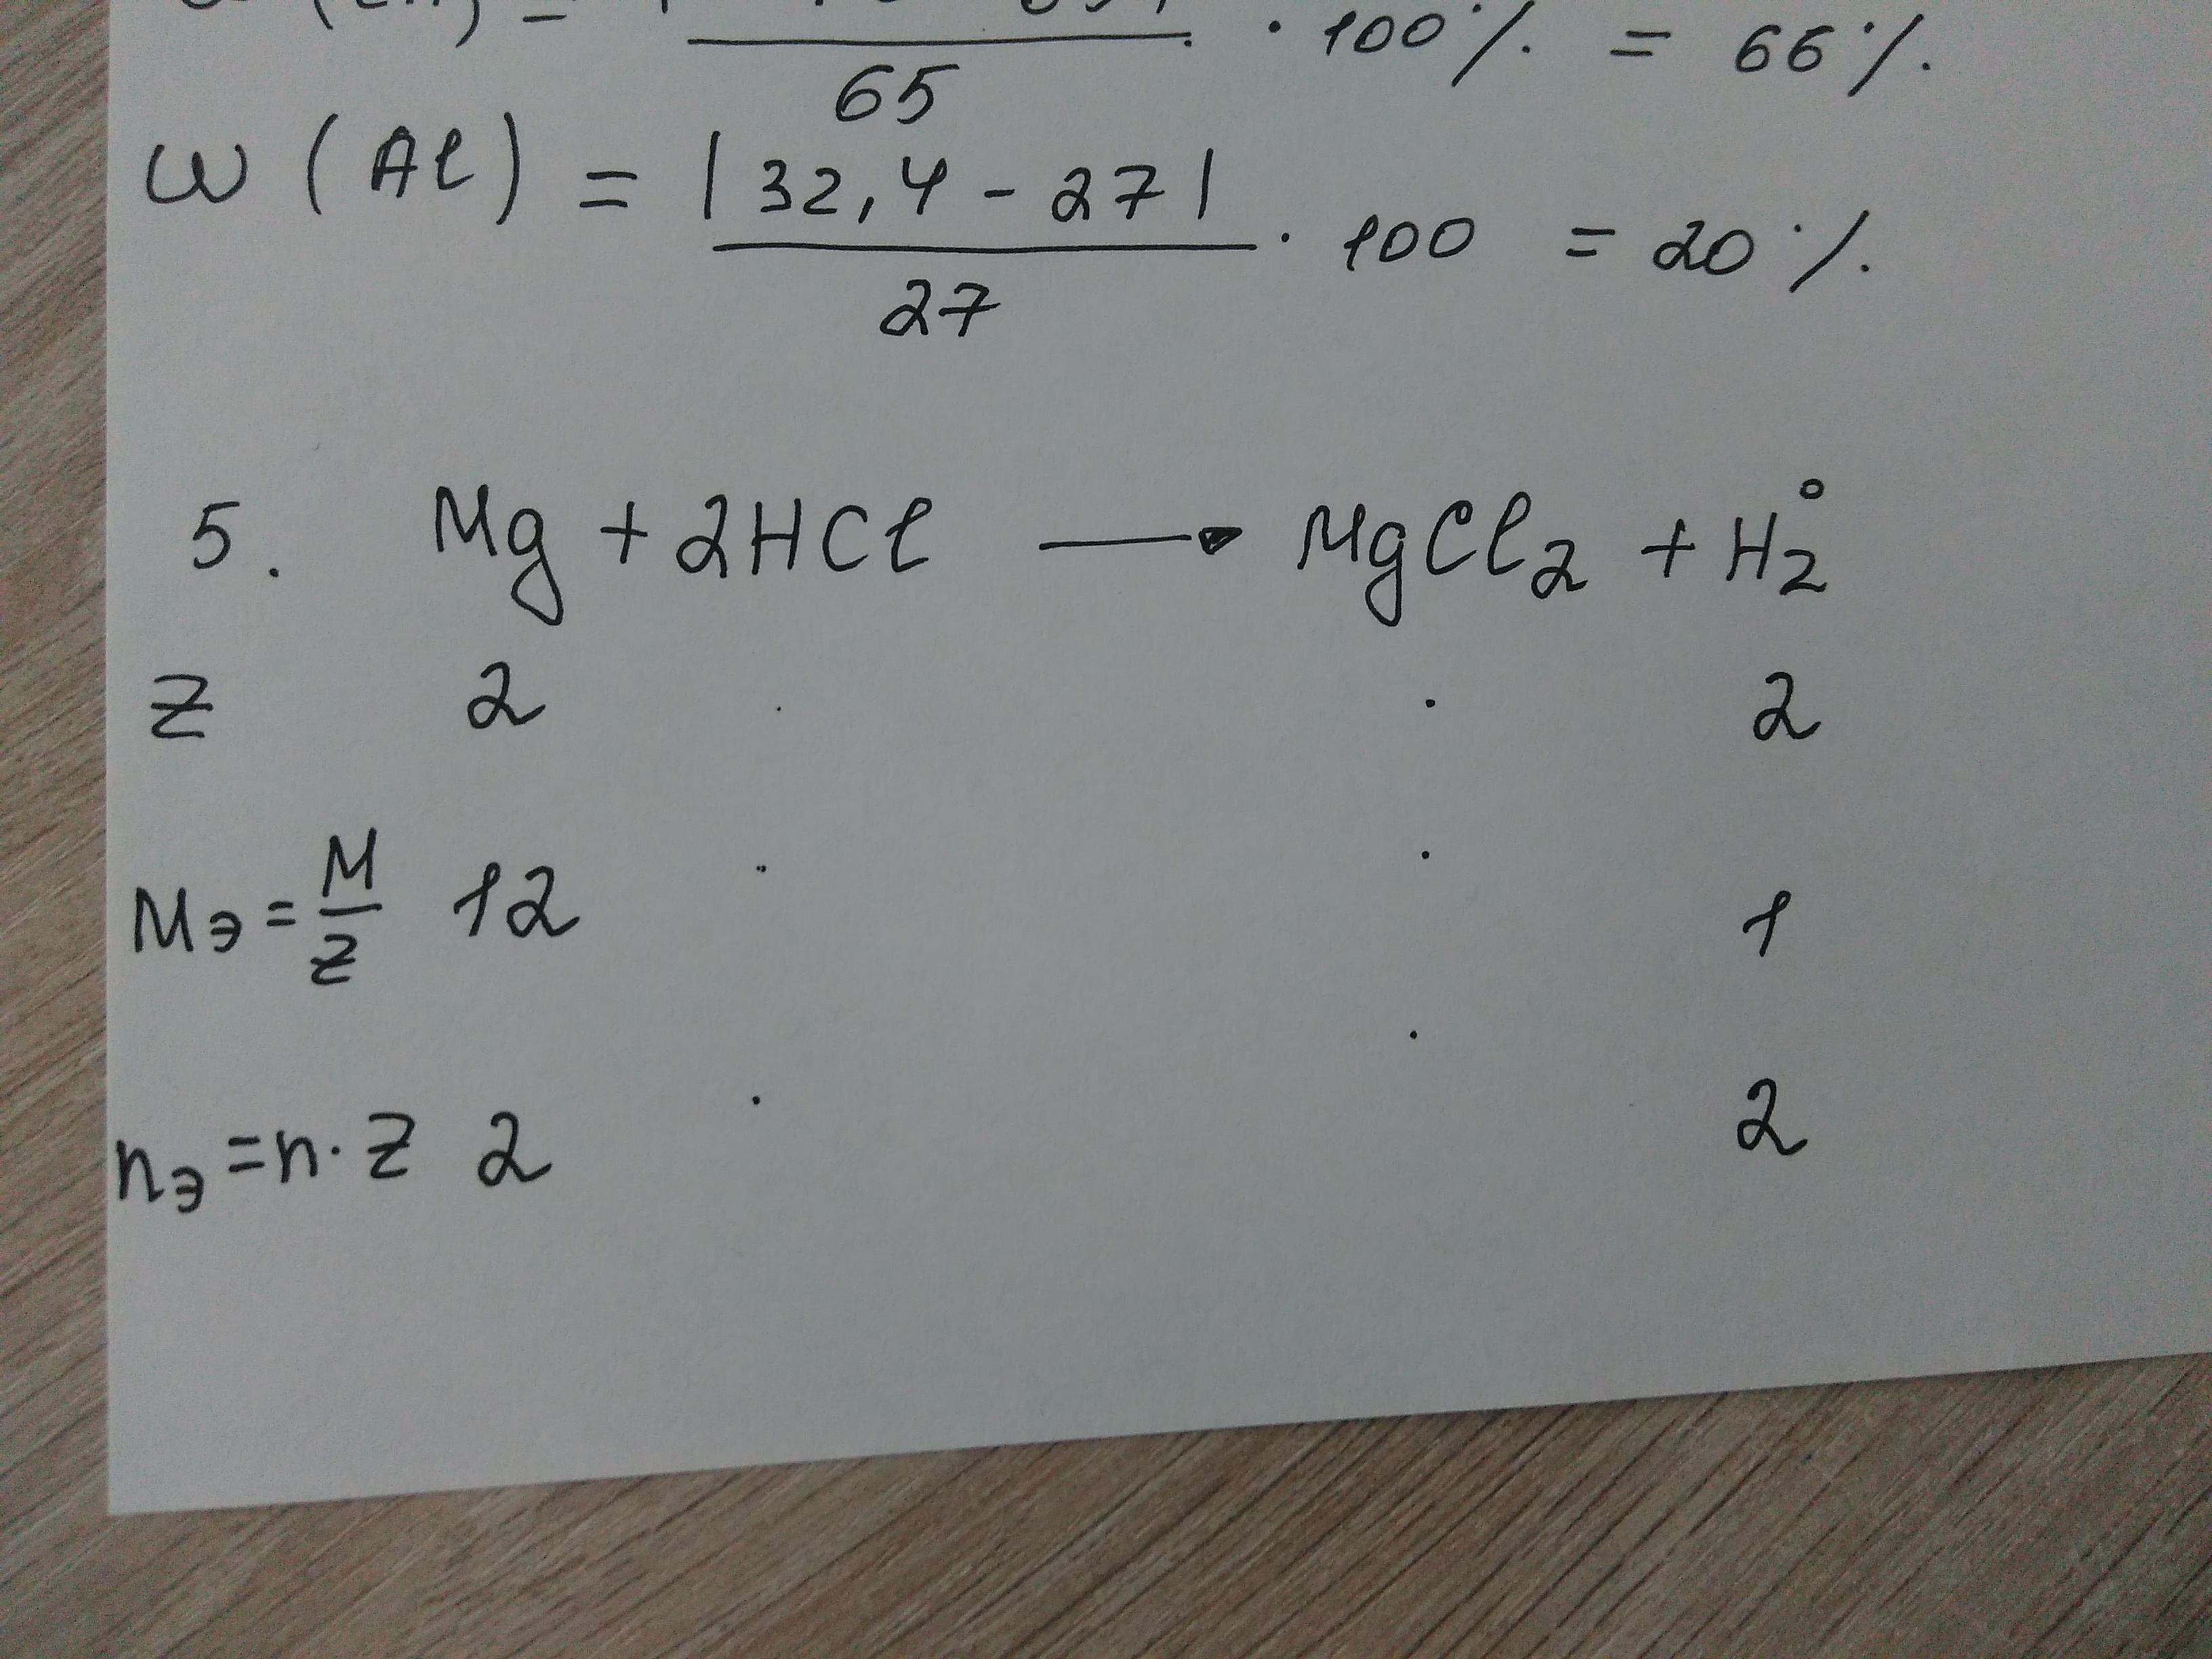 65 · 100% = 66%
ω (Al) = |32,4 - 27| / 27 · 100 = 20%
5. Mg + 2HCl → MgCl₂ + H₂⁰
z 2 . . 2
Mэ = M/z 12 . . 1
nэ = n · z 2 . . 2